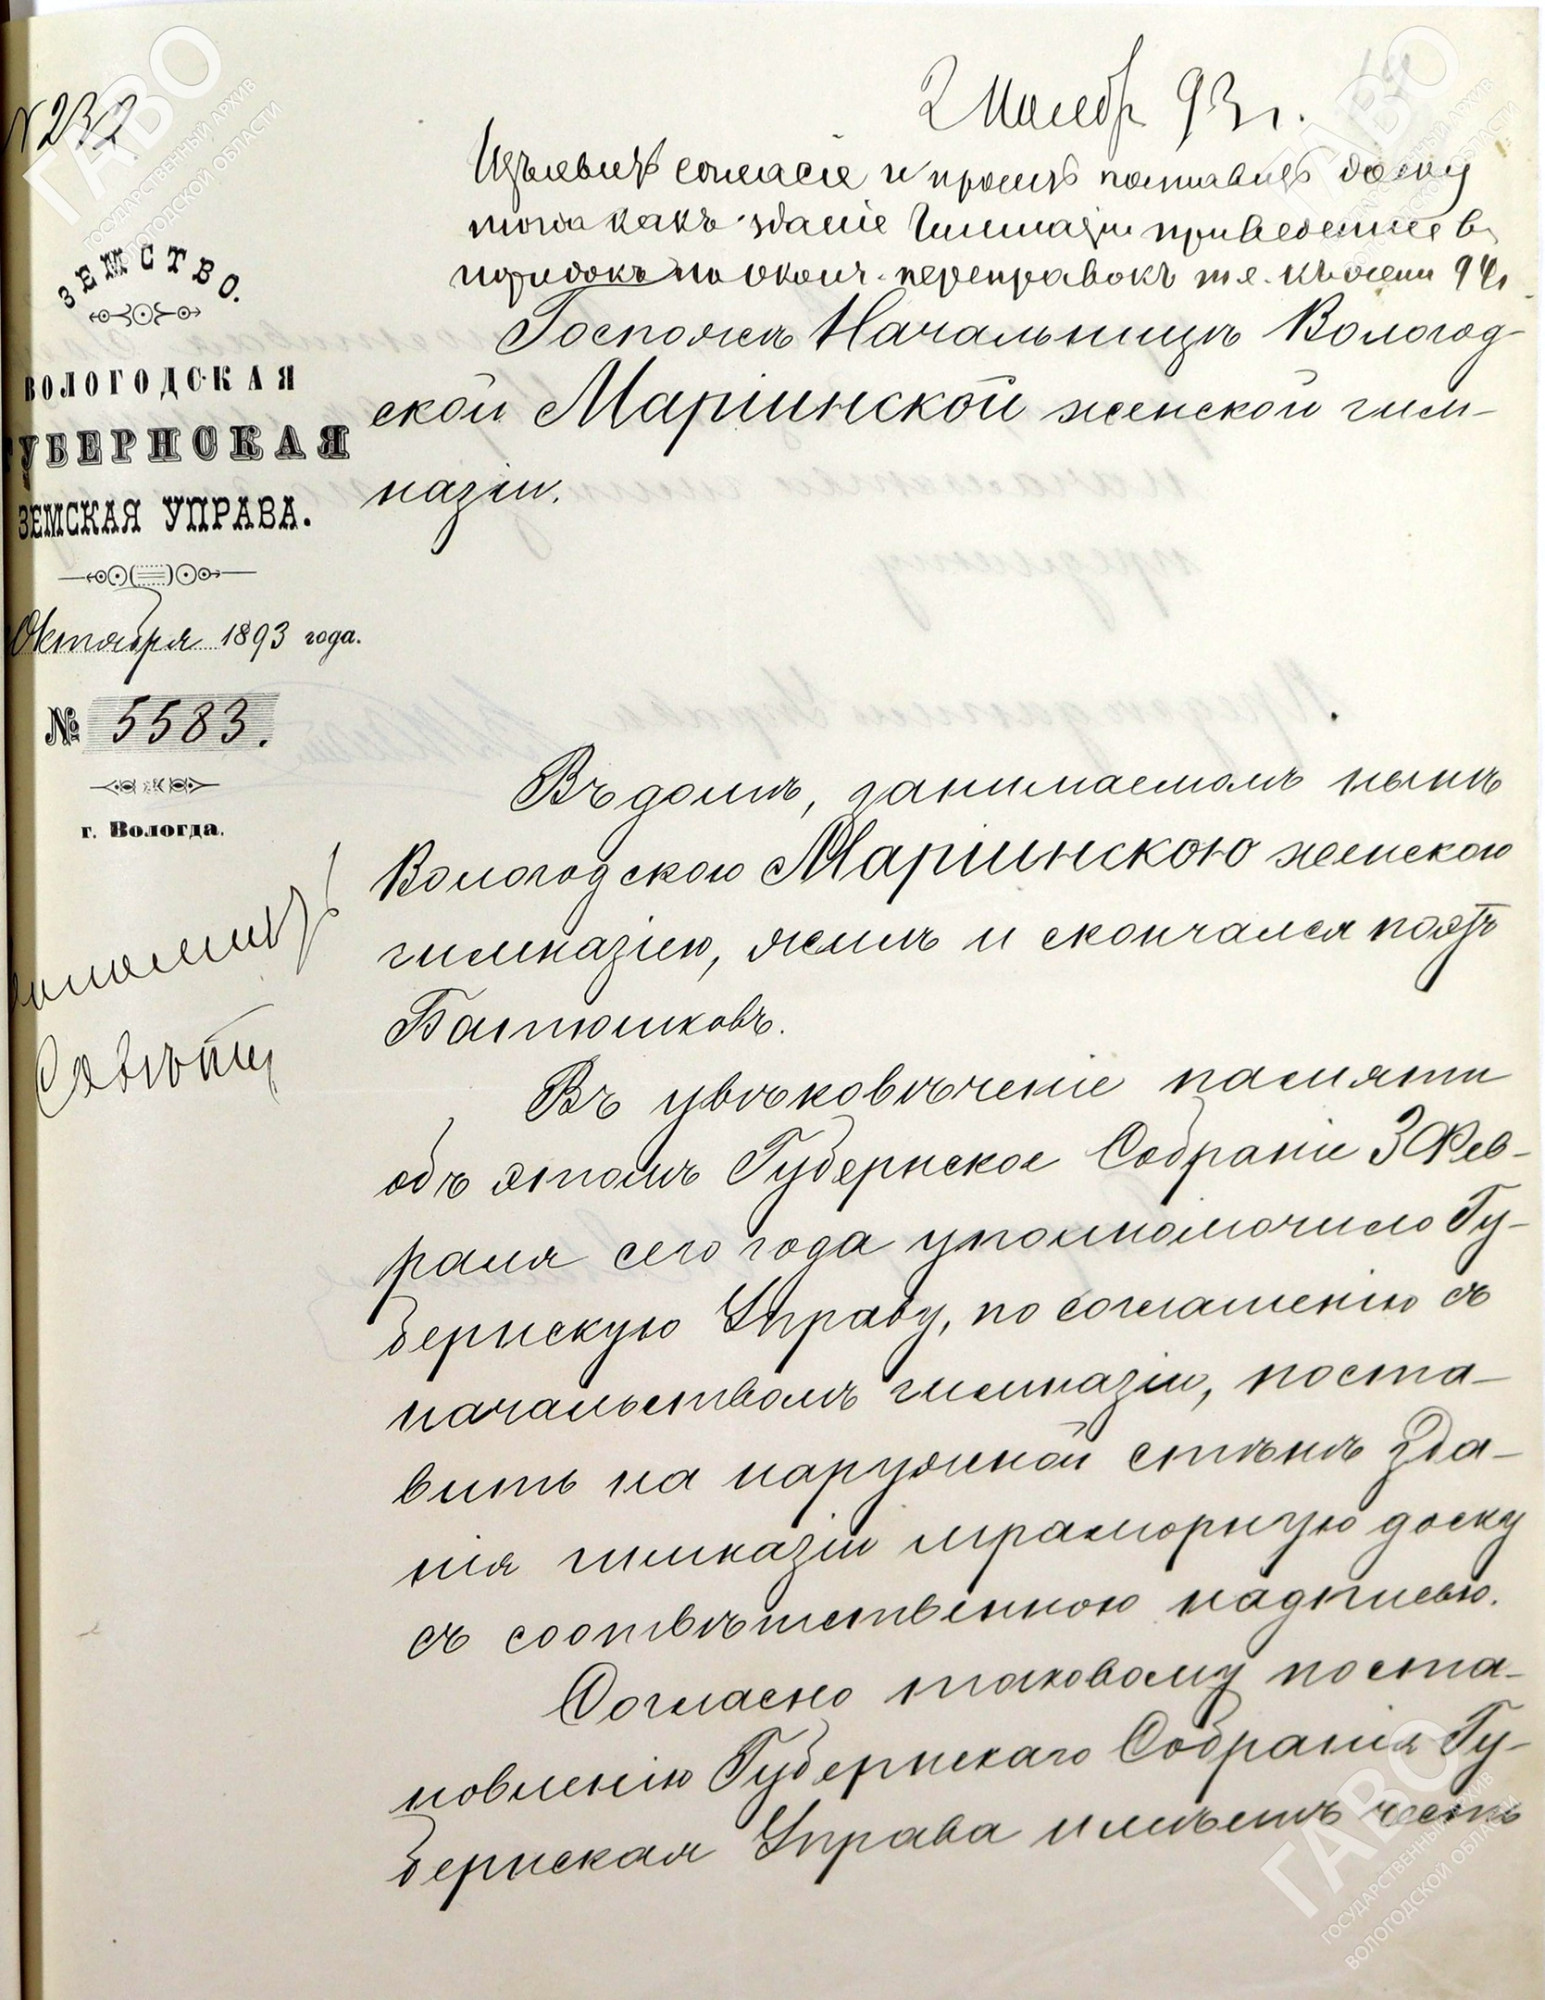 № 232
2 Ноябр 93 г.
14
Изъявить согласіе и просить поставить доску
тогда какъ зданіе Гимназіи приведенное в
порядокъ по оконч. переправокъ т.е. къ осени 94 г.
ЗЕМСТВО.
ВОЛОГОДСКАЯ
ГУБЕРНСКАЯ
ЗЕМСКАЯ УПРАВА.
Октября 1893 года.
№ 5583.
г. Вологда.
Совѣту
Госпожѣ Начальницѣ Вологод-
ской Маріинской женской гим-
назіи.
Въ домѣ, занимаемомъ нынѣ
Вологодскою Маріинскою женскою
гимназіею, жилъ и скончался поэтъ
Батюшковъ.
Въ увѣковѣченіе памяти
объ этомъ Губернское Собраніе 3 Фев-
раля сего года уполномочило Гу-
бернскую Управу, по соглашенію съ
начальствомъ гимназіи, поста-
вить на наружной стѣнѣ зда-
нія гимназіи мраморную доску
съ соотвѣтственною надписью.
Согласно таковому поста-
новленію Губернскаго Собранія Гу-
бернская Управа имѣетъ честь
ГАВО
ГОСУДАРСТВЕННЫЙ АРХИВ
ВОЛОГОДСКОЙ ОБЛАСТИ
ГАВО
ГОСУДАРСТВЕННЫЙ АРХИВ
ВОЛОГОДСКОЙ ОБЛАСТИ
ГАВО
ГОСУДАРСТВЕННЫЙ АРХИВ
ВОЛОГОДСКОЙ ОБЛАСТИ